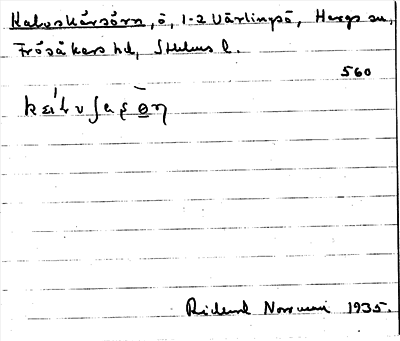 Kalvskärsörn, ö, 1-2 Värlingsö, Hargs sn,
Frösåkers hd, Sthlms l.
560
Rickard Norrman 1935.